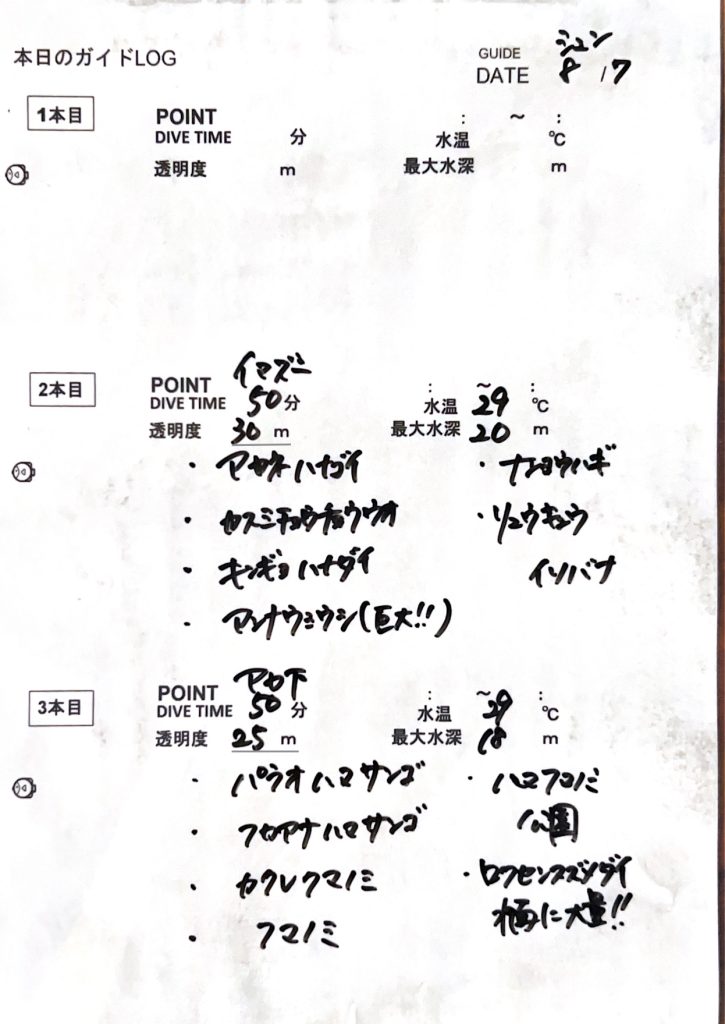 本日のガイドLOG
GUIDE ジュン
DATE 8/7
1本目
POINT : ~ :
DIVE TIME 分 水温 ℃
透明度 m 最大水深 m
2本目
POINT イマズニ : ~ :
DIVE TIME 50分 水温 29 ℃
透明度 30 m 最大水深 20 m
・アカネハナゴイ ・ナンヨウハギ
・カスミチョウチョウウオ ・リュウキュウ
・キンギョハナダイ イソバナ
・マンナウミウシ(巨大!!)
3本目
POINT アカ下 : ~ :
DIVE TIME 50分 水温 29 ℃
透明度 25 m 最大水深 18 m
・パラオハマサンゴ ・ハマクマノミ
・フカアナハマサンゴ 公園
・カクレクマノミ ・ロクセンスズメダイ
・クマノミ 大量!!